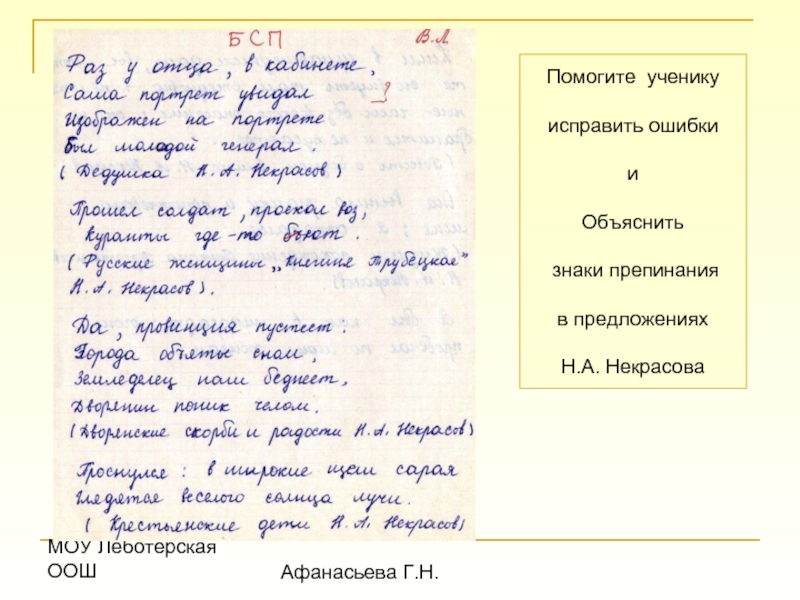 БСП
В.Л.
Раз у отца, в кабинете,
Саша портрет увидал
Изображен на портрете
Был молодой генерал.
(Дедушка Н.А. Некрасов)
Прошел солдат, проехал воз,
Куранты где-то бьют.
(Русские женщины „Княгиня Трубецкая"
Н.А. Некрасов).
Да, провинция пустеет.
Города объяты сном,
Земледелец наш беднеет,
Дворянин поник челом.
(Дворянские скорби и радости Н.А. Некрасов)
Проснулся: в широкие щели сарая
Глядятся веселого солнца лучи.
(Крестьянские дети Н.А. Некрасов)
Помогите ученику
исправить ошибки
и
Объяснить
знаки препинания
в предложениях
Н.А. Некрасова
МОУ Леботерская
ООШ
Афанасьева Г.Н.